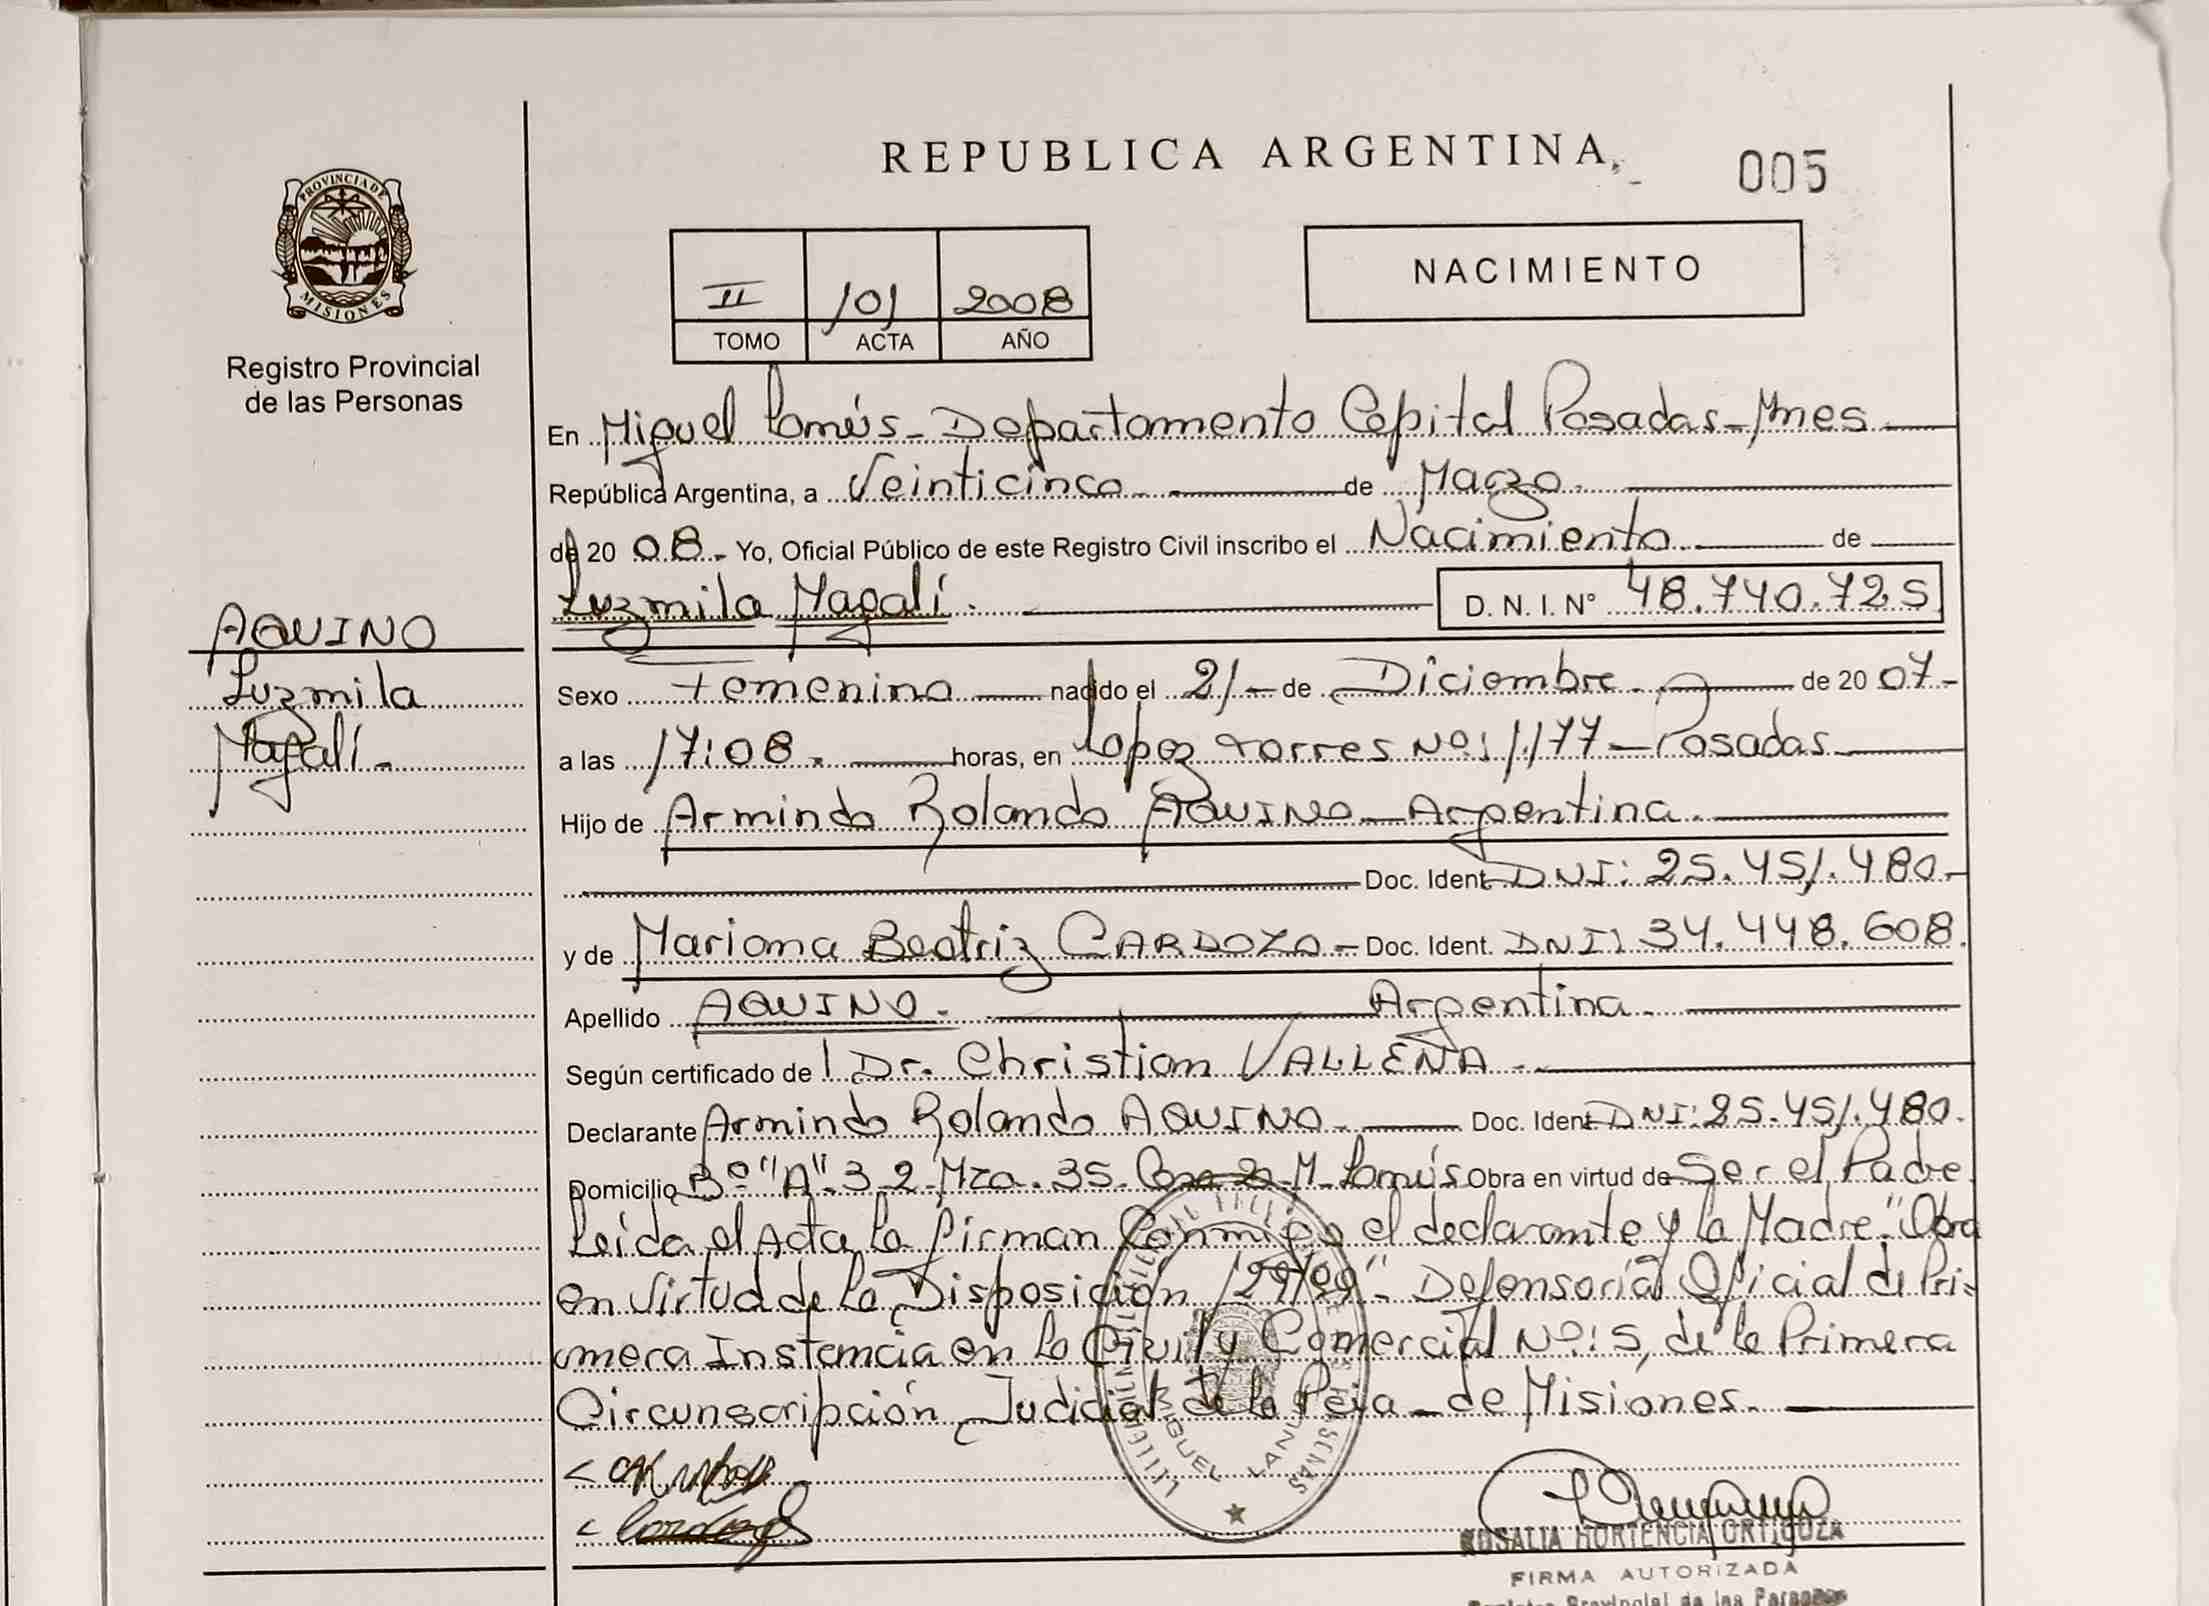 REPUBLICA ARGENTINA
005
PROVINCIA DE
MISIONES
Registro Provincial
de las Personas
NACIMIENTO
II 101 2008
TOMO ACTA AÑO
En Miguel Lanús - Departamento Capital Posadas - Mnes
República Argentina, a Veinticinco de Marzo.
de 20 08. Yo, Oficial Público de este Registro Civil inscribo el Nacimiento de
Luzmila Magalí. D. N. I. N° 48.740.725
AQUINO
Luzmila
Magalí.-
Sexo Femenino nacido el 21 - de Diciembre. de 20 07-
a las 17:08. horas, en Lopez Torres Nº: 1.177 - Posadas
Hijo de Armindo Rolando AQUINO - Argentina.
Doc. Ident. DNI: 25.451.480-
y de Mariana Beatriz CARDOZO - Doc. Ident. DNI: 34.448.608.
Apellido AQUINO. Argentina.
Según certificado de Dr. Christian VALLEJA.
Declarante Armindo Rolando AQUINO. Doc. Ident. DNI: 25.451.480.
Domicilio Bº "A" 3-2 Mza. 35. Casa M. Lanús Obra en virtud de Ser el Padre
Leida el Acta la firman Conmigo el declarante y la Madre. "Obra
en virtud de la Disposición 129/99". Defensoría Oficial de Pri-
mera Instancia en lo Civil y Comercial Nº: 5, de la Primera
Circunscripción Judicial de la Pcia - de Misiones.
MIGUEL LANUS
ROSALIA HORTENCIA ORTIGOZA
FIRMA AUTORIZADA
Registro Provincial de las Personas